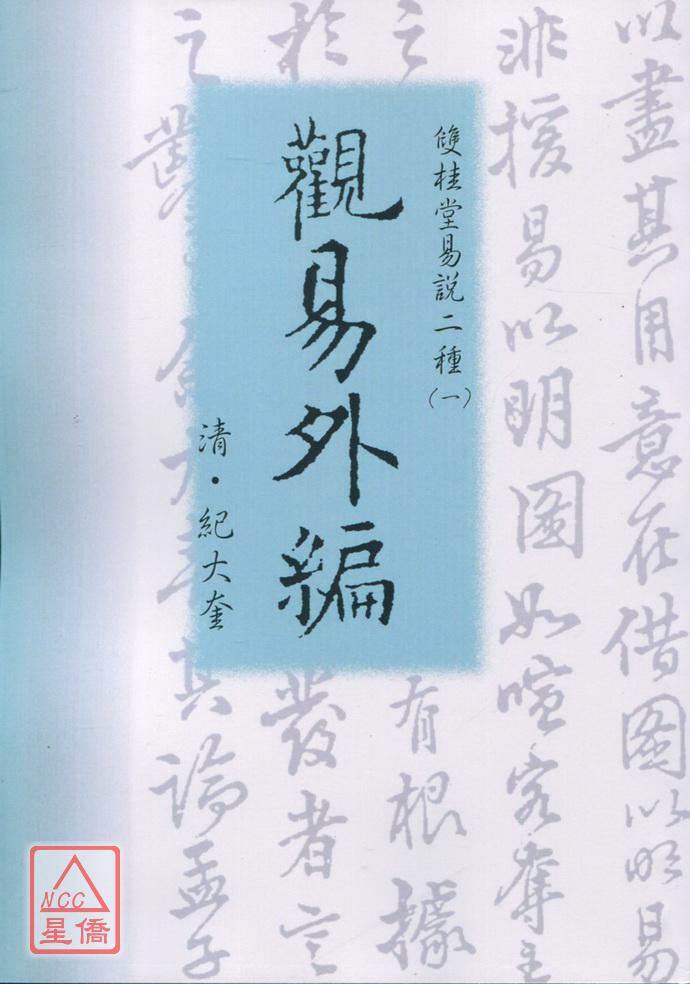 以盡其用意在借圖以明易
非援易以明圖如喧客奪主
之
有根據
於
發者言
之
其論孟子
雙桂堂易說二種(一)
觀易外編
清・紀大奎
NCC
星僑